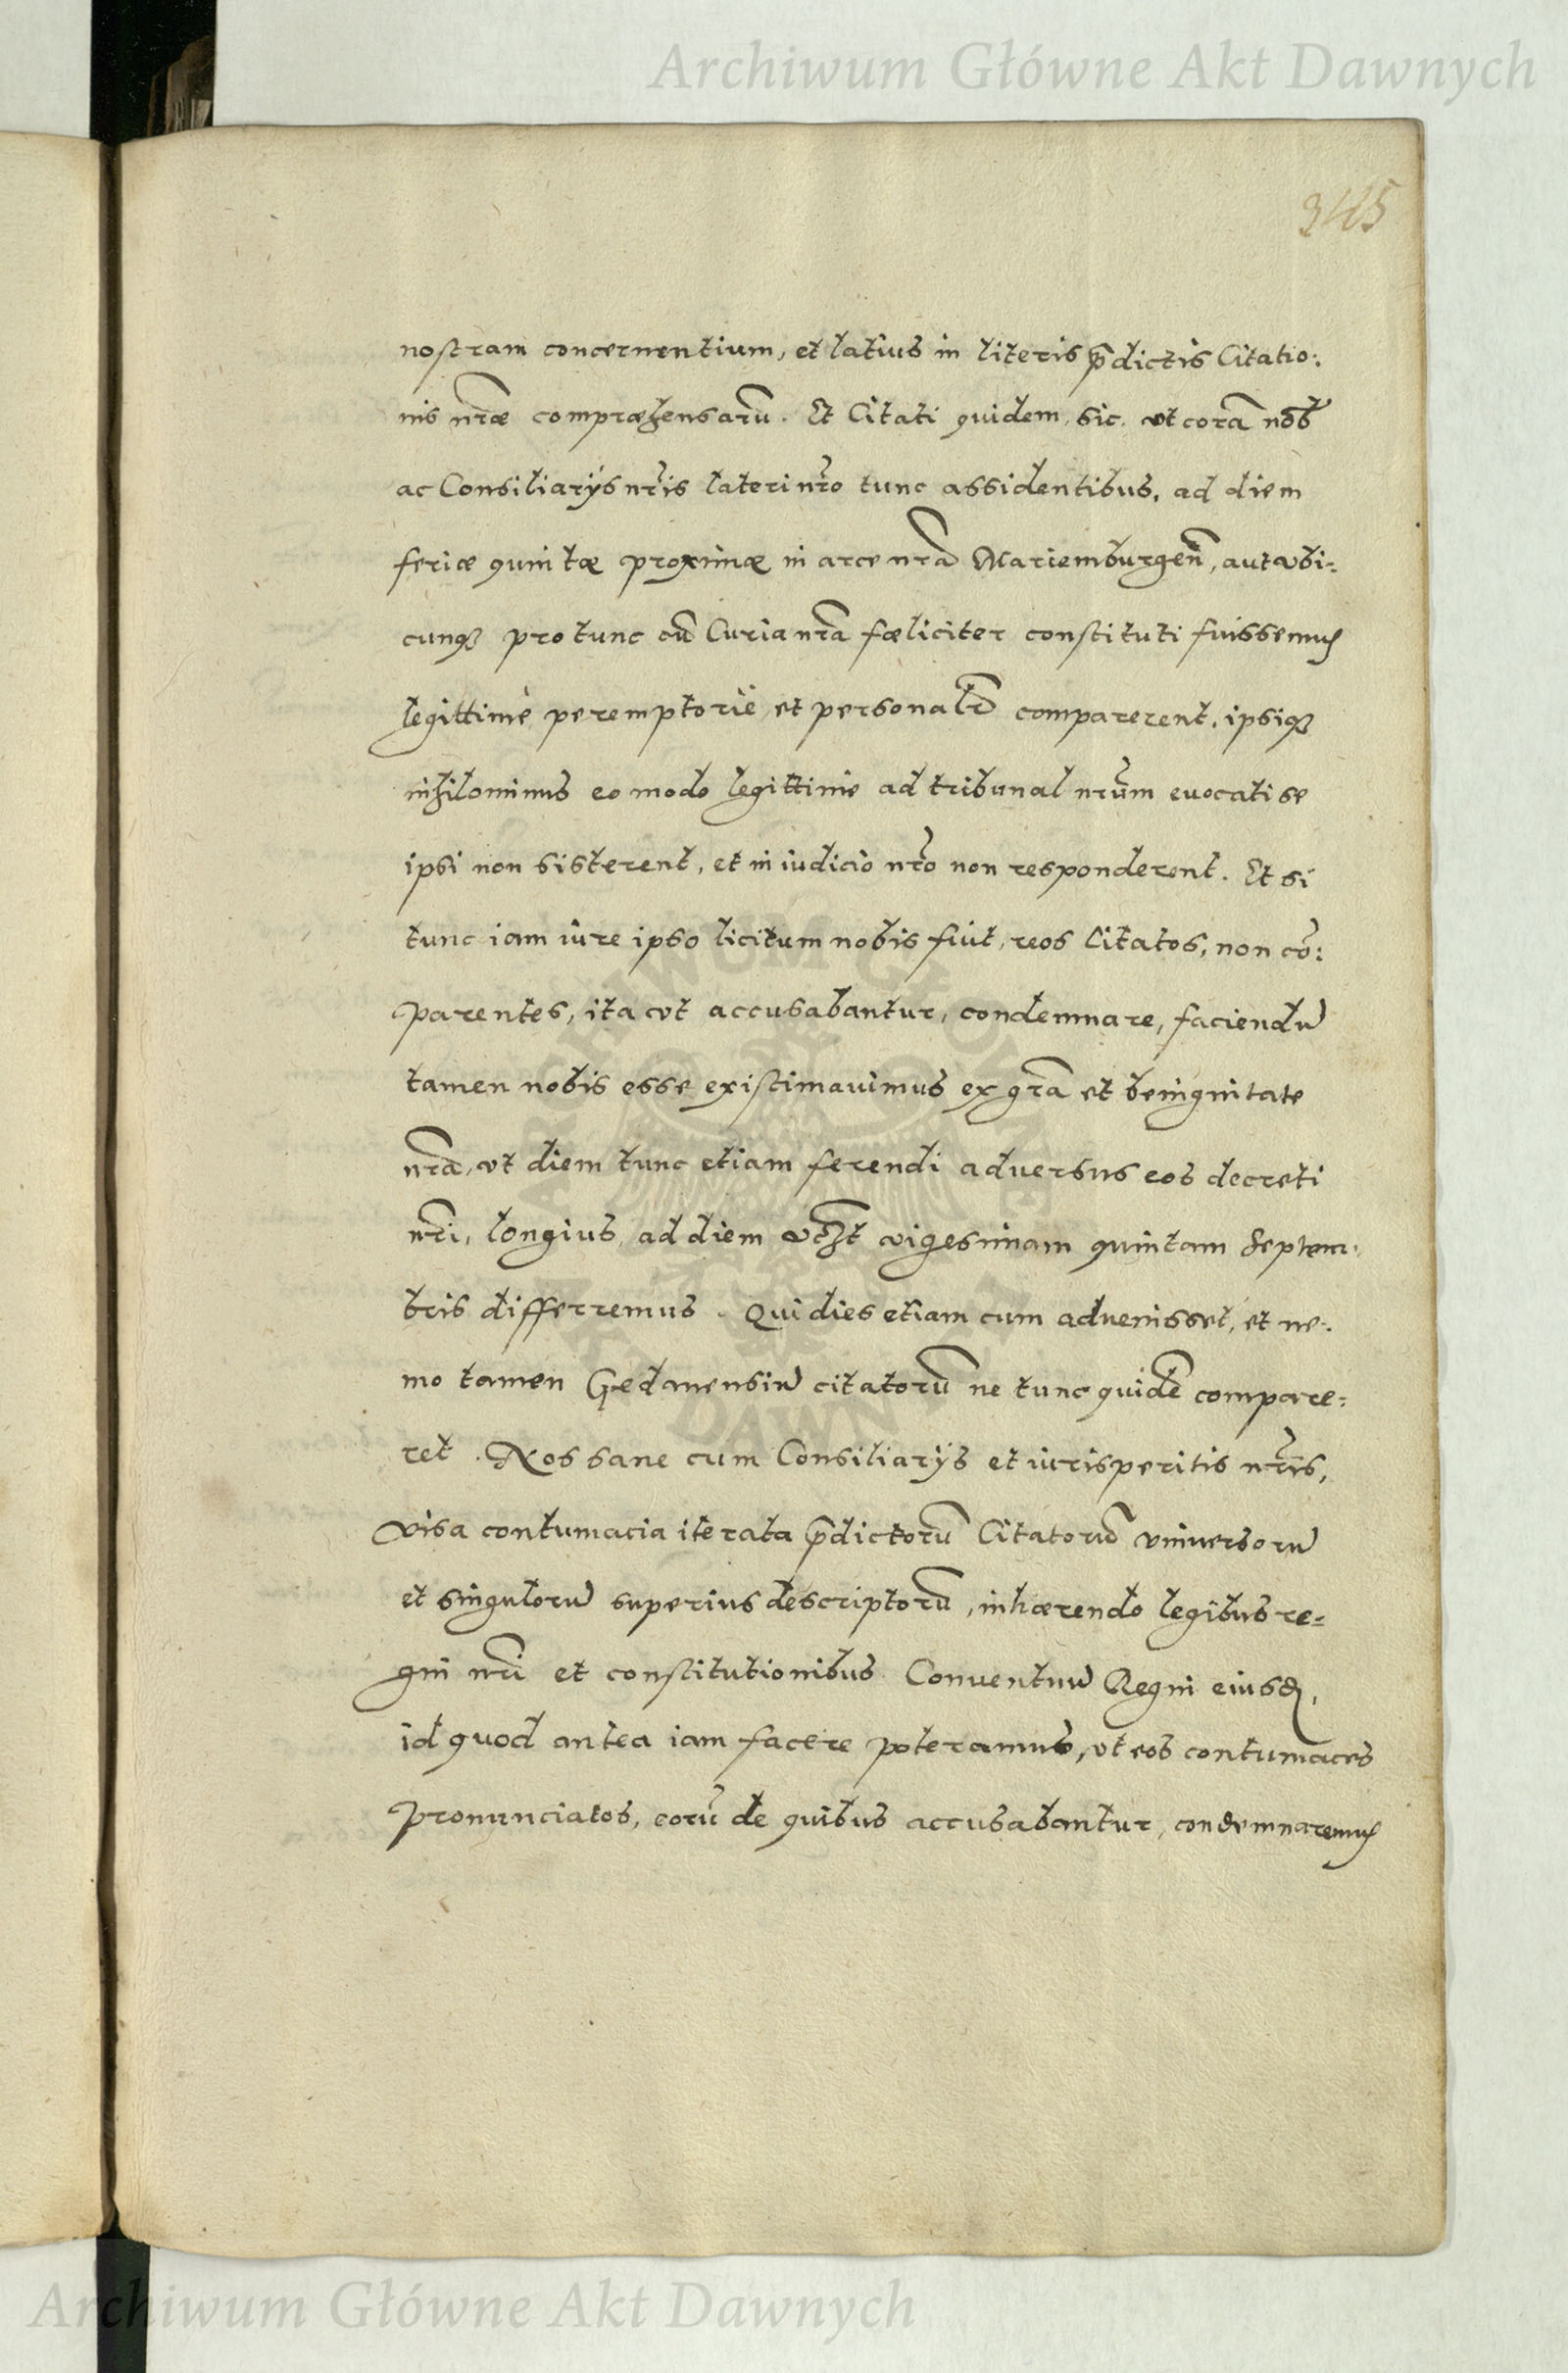 Archiwum Główne Akt Dawnych
345
nostram concernentium, et latius in literis p̄dictis Citatio:
nis nr̄æ compræhensarū. Et Citati quidem, sic, vt corā nōb
ac Consiliarÿs nr̄is lateri nr̄o tunc assidentibus, ad diem
feriæ quintæ proximæ in arce nr̄a Mariemburgen̄, aut vbi-
cunq₃ pro tunc cū Curia nr̄a fæliciter constituti fuissemus
legittimè peremptoriè et personalr̄ comparerent, ipsiq₃
nihilominus eo modo legittime ad tribunal nr̄um euocati se
ipsi non sisterent, et in iudicio nr̄o non responderent. Et si
tunc iam iure ipso licitum nobis fuit, reos Citatos, non cō:
parentes, ita vt accusabantur, condemnare, faciendū
tamen nobis esse existimauimus ex gr̄a et benignitate
nr̄a, vt diem tunc etiam ferendi aduersus eos decreti
nr̄i, longius, ad diem vigesimam quintam Septem:
bris differremus. Qui dies etiam cum aduenisset, et ne:
mo tamen Gedanensiū citatorū ne tunc quidē compare:
ret. Nos sane cum Consiliarÿs et iurisperitis nr̄is,
visa contumacia iterata p̄dictorū Citatorū vniuersorū
et singulorū superius descriptorū, inhærendo legibus re-
gni nr̄i et constitutionibus Conuentuū Regni eiusd,
id quod antea iam facere poteramus, vt eos contumaces
pronunciatos, eorū de quibus accusabantur, condemnaremus
ARCHIWUM GŁÓWNE AKT DAWNYCH
Archiwum Główne Akt Dawnych